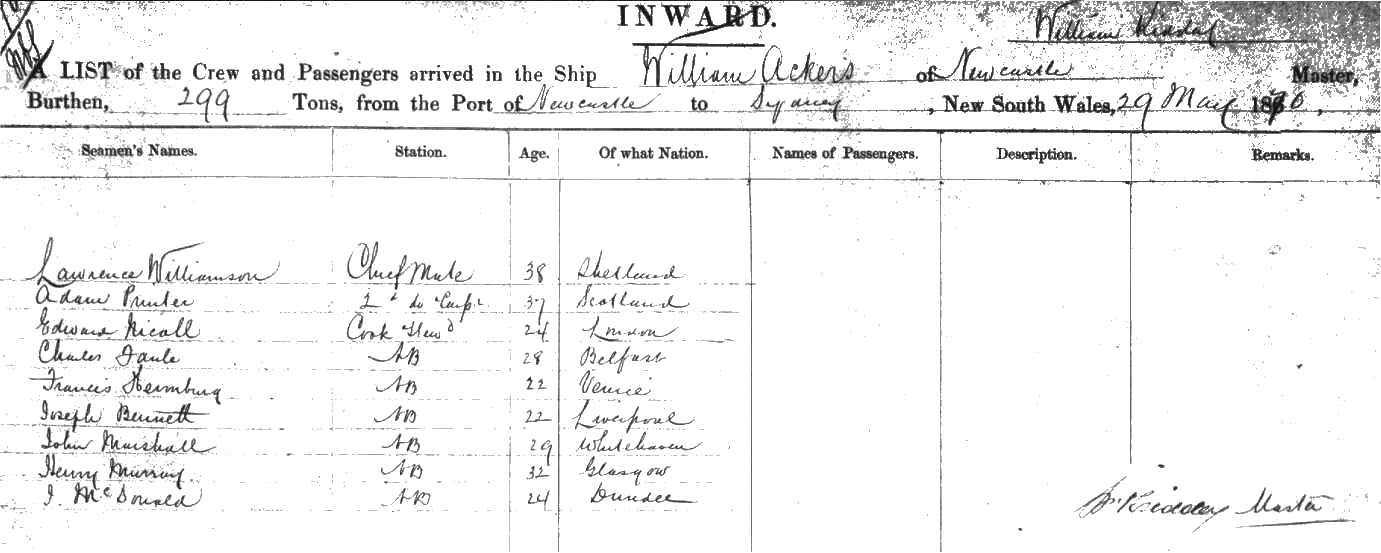 INWARD.
William
A LIST of the Crew and Passengers arrived in the Ship William Ackers of Newcastle Master,
Burthen, 299 Tons, from the Port of Newcastle to Sydney, New South Wales, 29 May 1870,
Seamen's Names. Station. Age. Of what Nation. Names of Passengers. Description. Remarks.
Lawrence Williamson Chief Mate 38 Shetland
Adam 2d do Carpr 37 Scotland
Edward Nicoll Cook Stewd 24 London
Charles AB 28 Belfast
Francis AB 22 Venice
Joseph Bennett AB 22 Liverpool
John Marshall AB 29 Whitehaven
Henry Murray AB 32 Glasgow
J. McDonald AB 24 Dundee
Wm Master